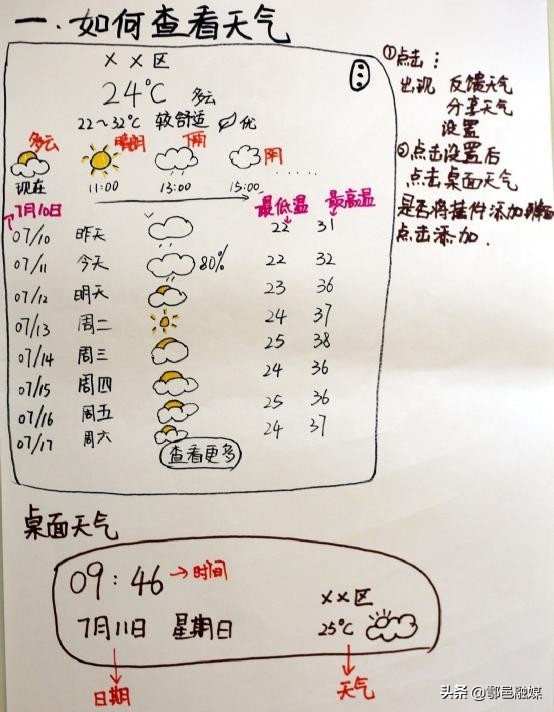 一.如何查看天气
××区
24℃ 多云
22~32℃ 较舒适 优
多云 晴朗 雨 阴
现在 11:00 13:00 15:00 ......
7月10日 最低温 最高温
07/10 昨天 22 31
07/11 今天 80% 22 32
07/12 明天 23 36
07/13 周二 24 37
07/14 周三 25 38
07/15 周四 24 36
07/16 周五 25 36
07/17 周六 24 37
查看更多
①点击:
出现 反馈天气
分享天气
设置
②点击设置后
点击桌面天气
是否将挂件添加到桌面
点击添加.
桌面天气
09:46 →时间
7月11日 星期日
××区
25℃
日期
天气
头条 @鄠邑融媒